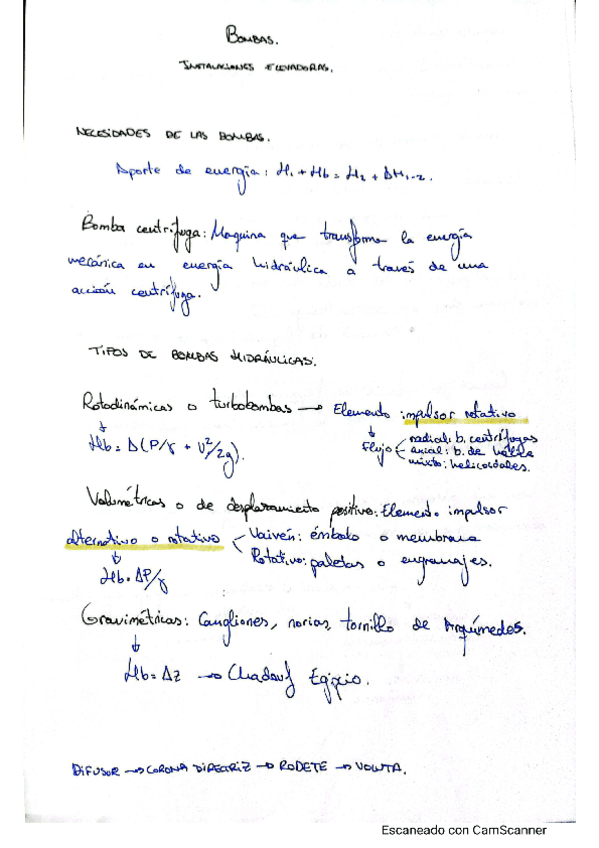 BOMBAS.
INSTALACIONES ELEVADORAS.
NECESIDADES DE LAS BOMBAS.
Aporte de energía: H₁ + Hb = H₂ + ΔH₁₋₂.
Bomba centrífuga: Maquina que transforma la energía
mecánica en energía hidráulica a través de una
acción centrífuga.
TIPOS DE BOMBAS HIDRÁULICAS.
Rotodinámicas o turbobombas → Elemento impulsor rotativo
Hb = Δ(P/γ + V²/2g).
Flujo
radial: b. centrífugas
axial: b. de hélice
mixto: helicoidales.
Volumétricas o de desplazamiento positivo: Elemento impulsor
alternativo o rotativo
Vaivén: émbolo o membrana
Rotativo: paletas o engranajes.
Hb = ΔP/γ
Gravimétricas: Cangliones, norias, tornillo de Arquímedes.
Hb = Δz → Chadouf Egipcio.
DIFUSOR → CORONA DIRECTRIZ → RODETE → VOLUTA.
Escaneado con CamScanner